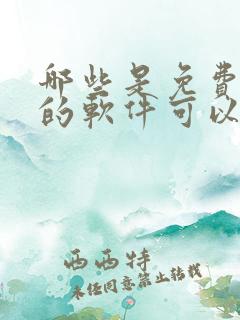 那些是免費
的軟件可以
西西特
未经同意禁止转载